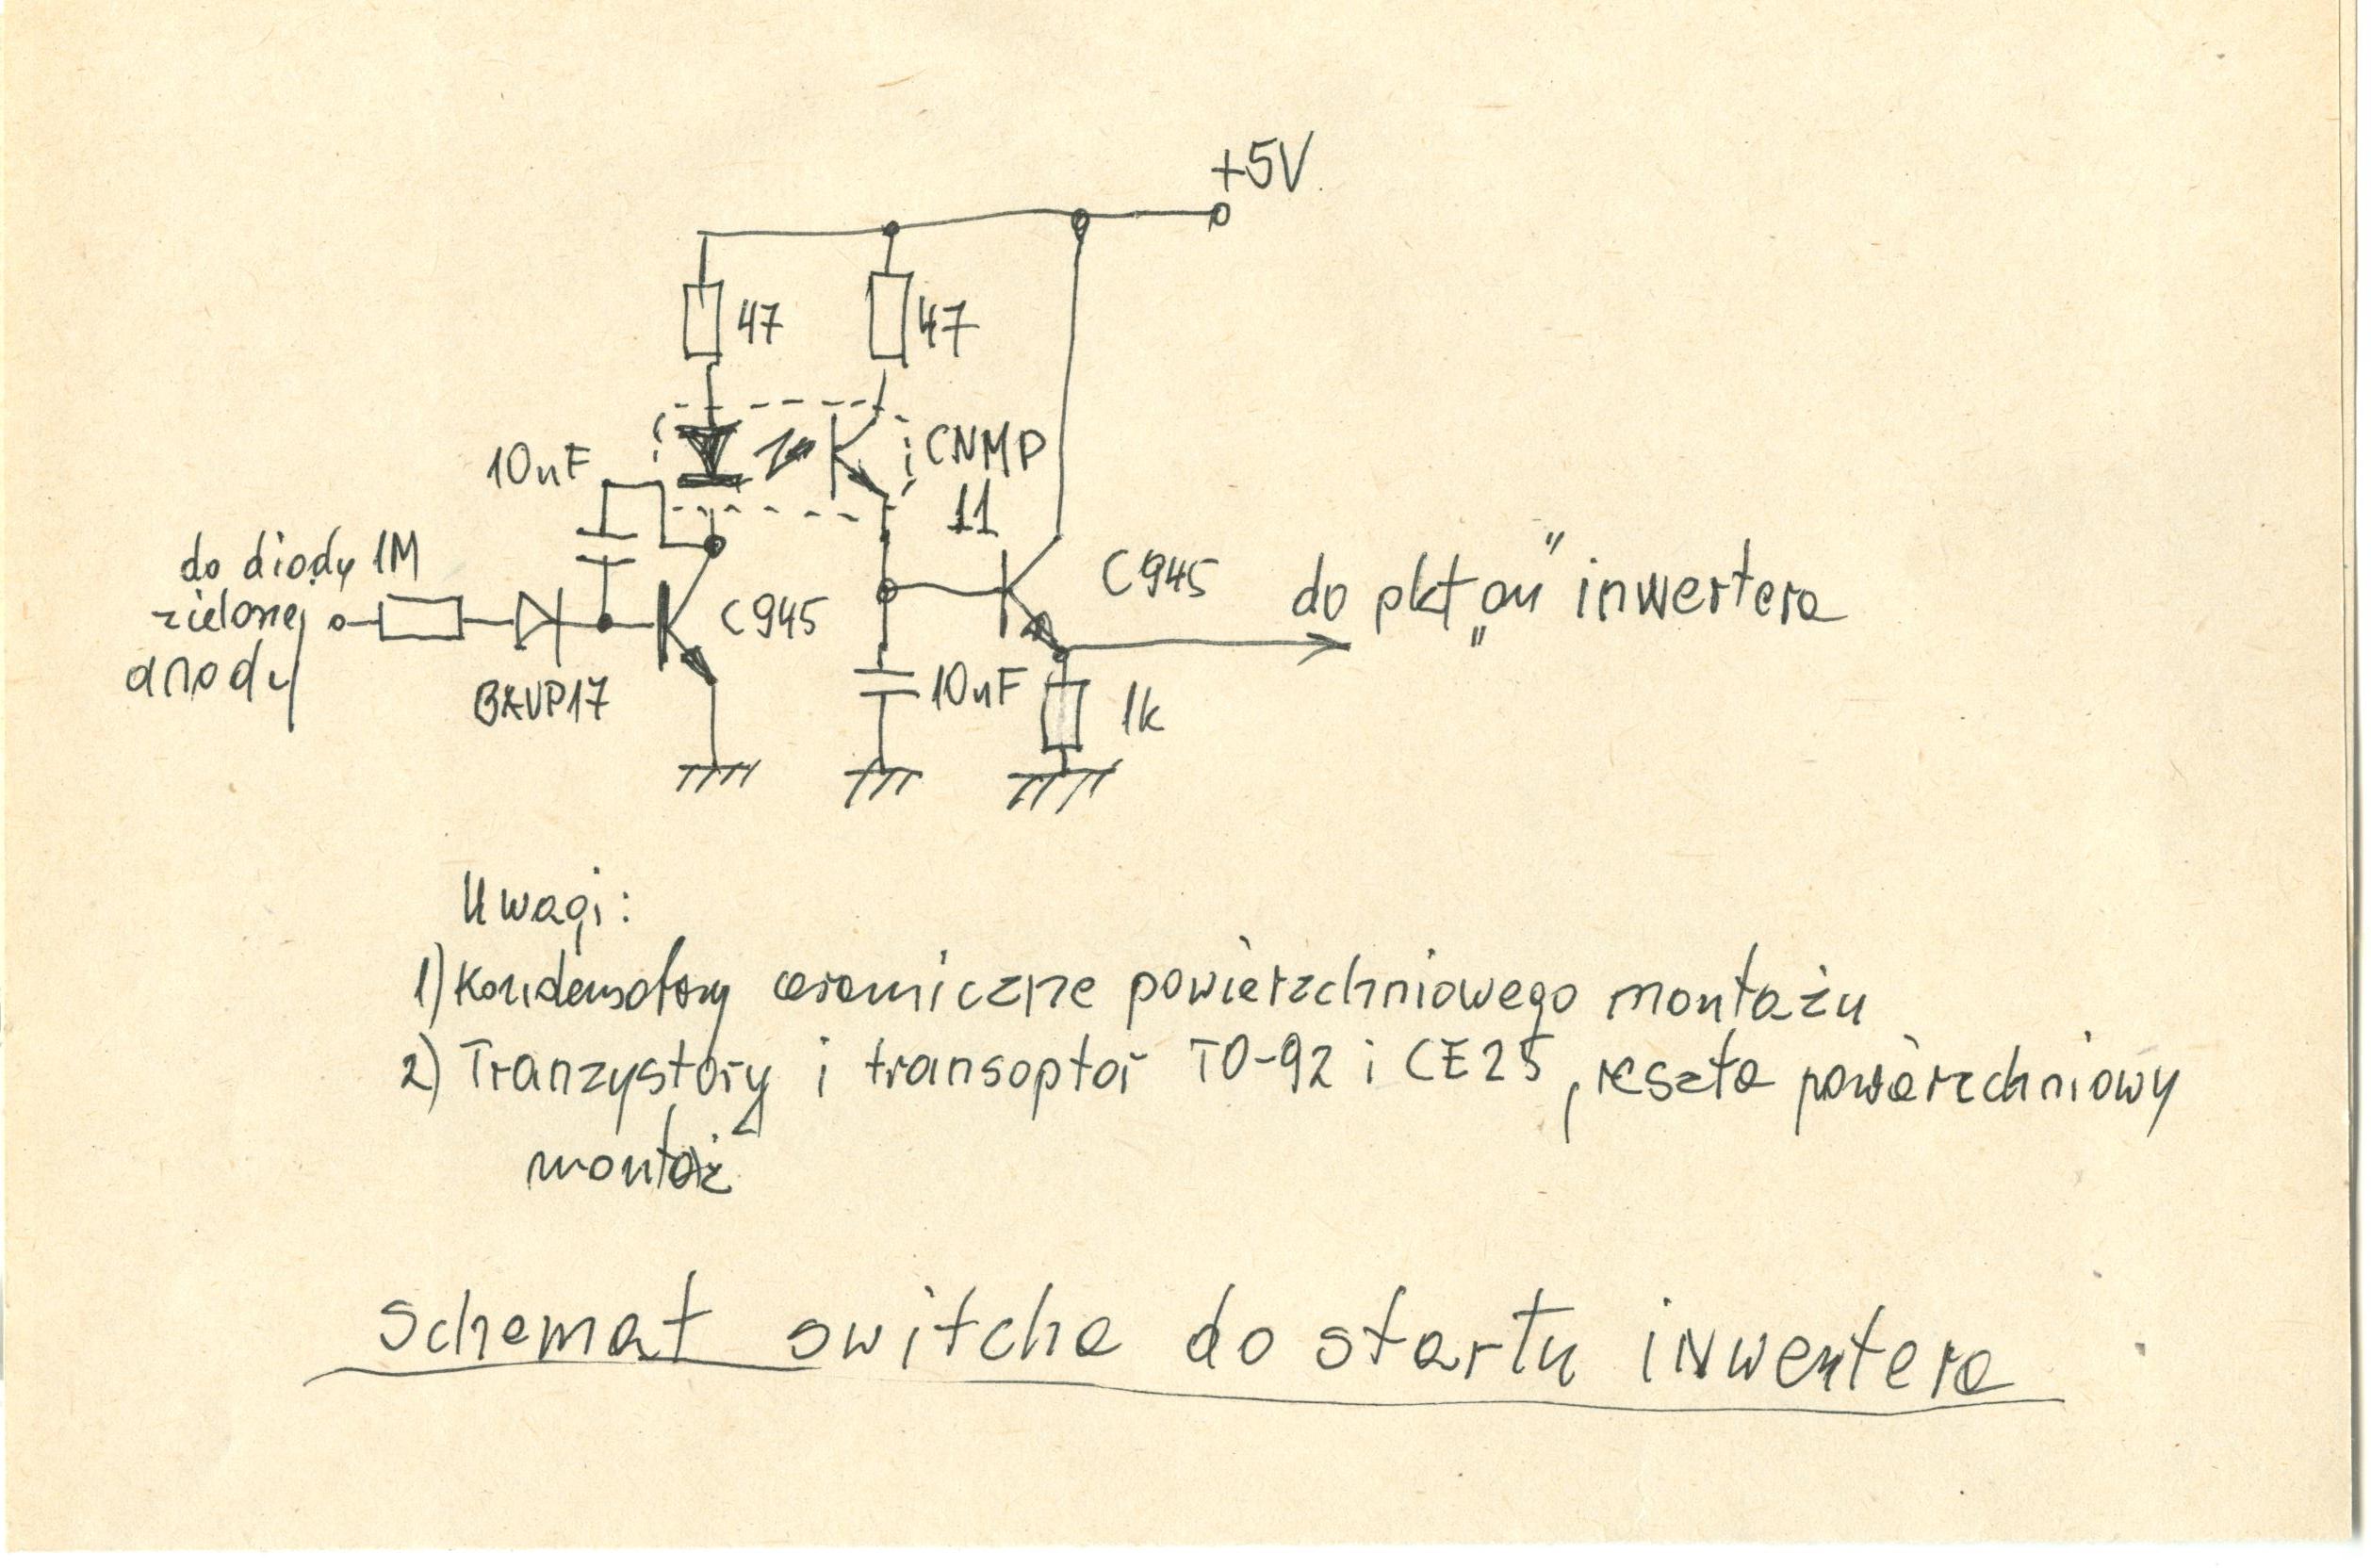 +5V
47
47
10nF
CNMP
11
do diody 1M
zielonej
anody
C945
C945
do pkt „on" inwertera
BAVP17
10nF
1k
Uwagi:
1) Kondensatory ceramiczne powierzchniowego montażu
2) Tranzystory i transoptor TO-92 i CE25, reszta powierzchniowy
montaż
Schemat switcha do startu inwertera